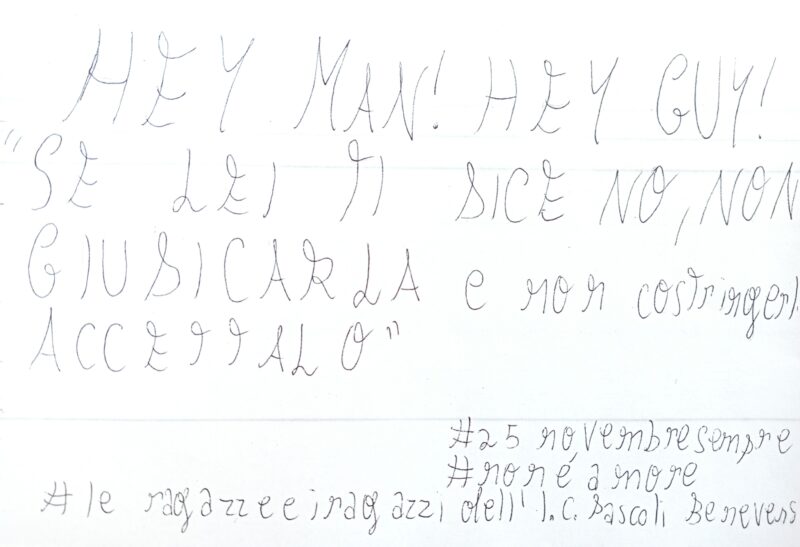 HEY MAN! HEY GUY!
"SE LEI TI DICE NO, NON
GIUDICARLA e non costringerl
ACCETTALO"
#25 novembresempre
#non é amore
#le ragazze e i ragazzi dell' I.C. Pascoli Benevens